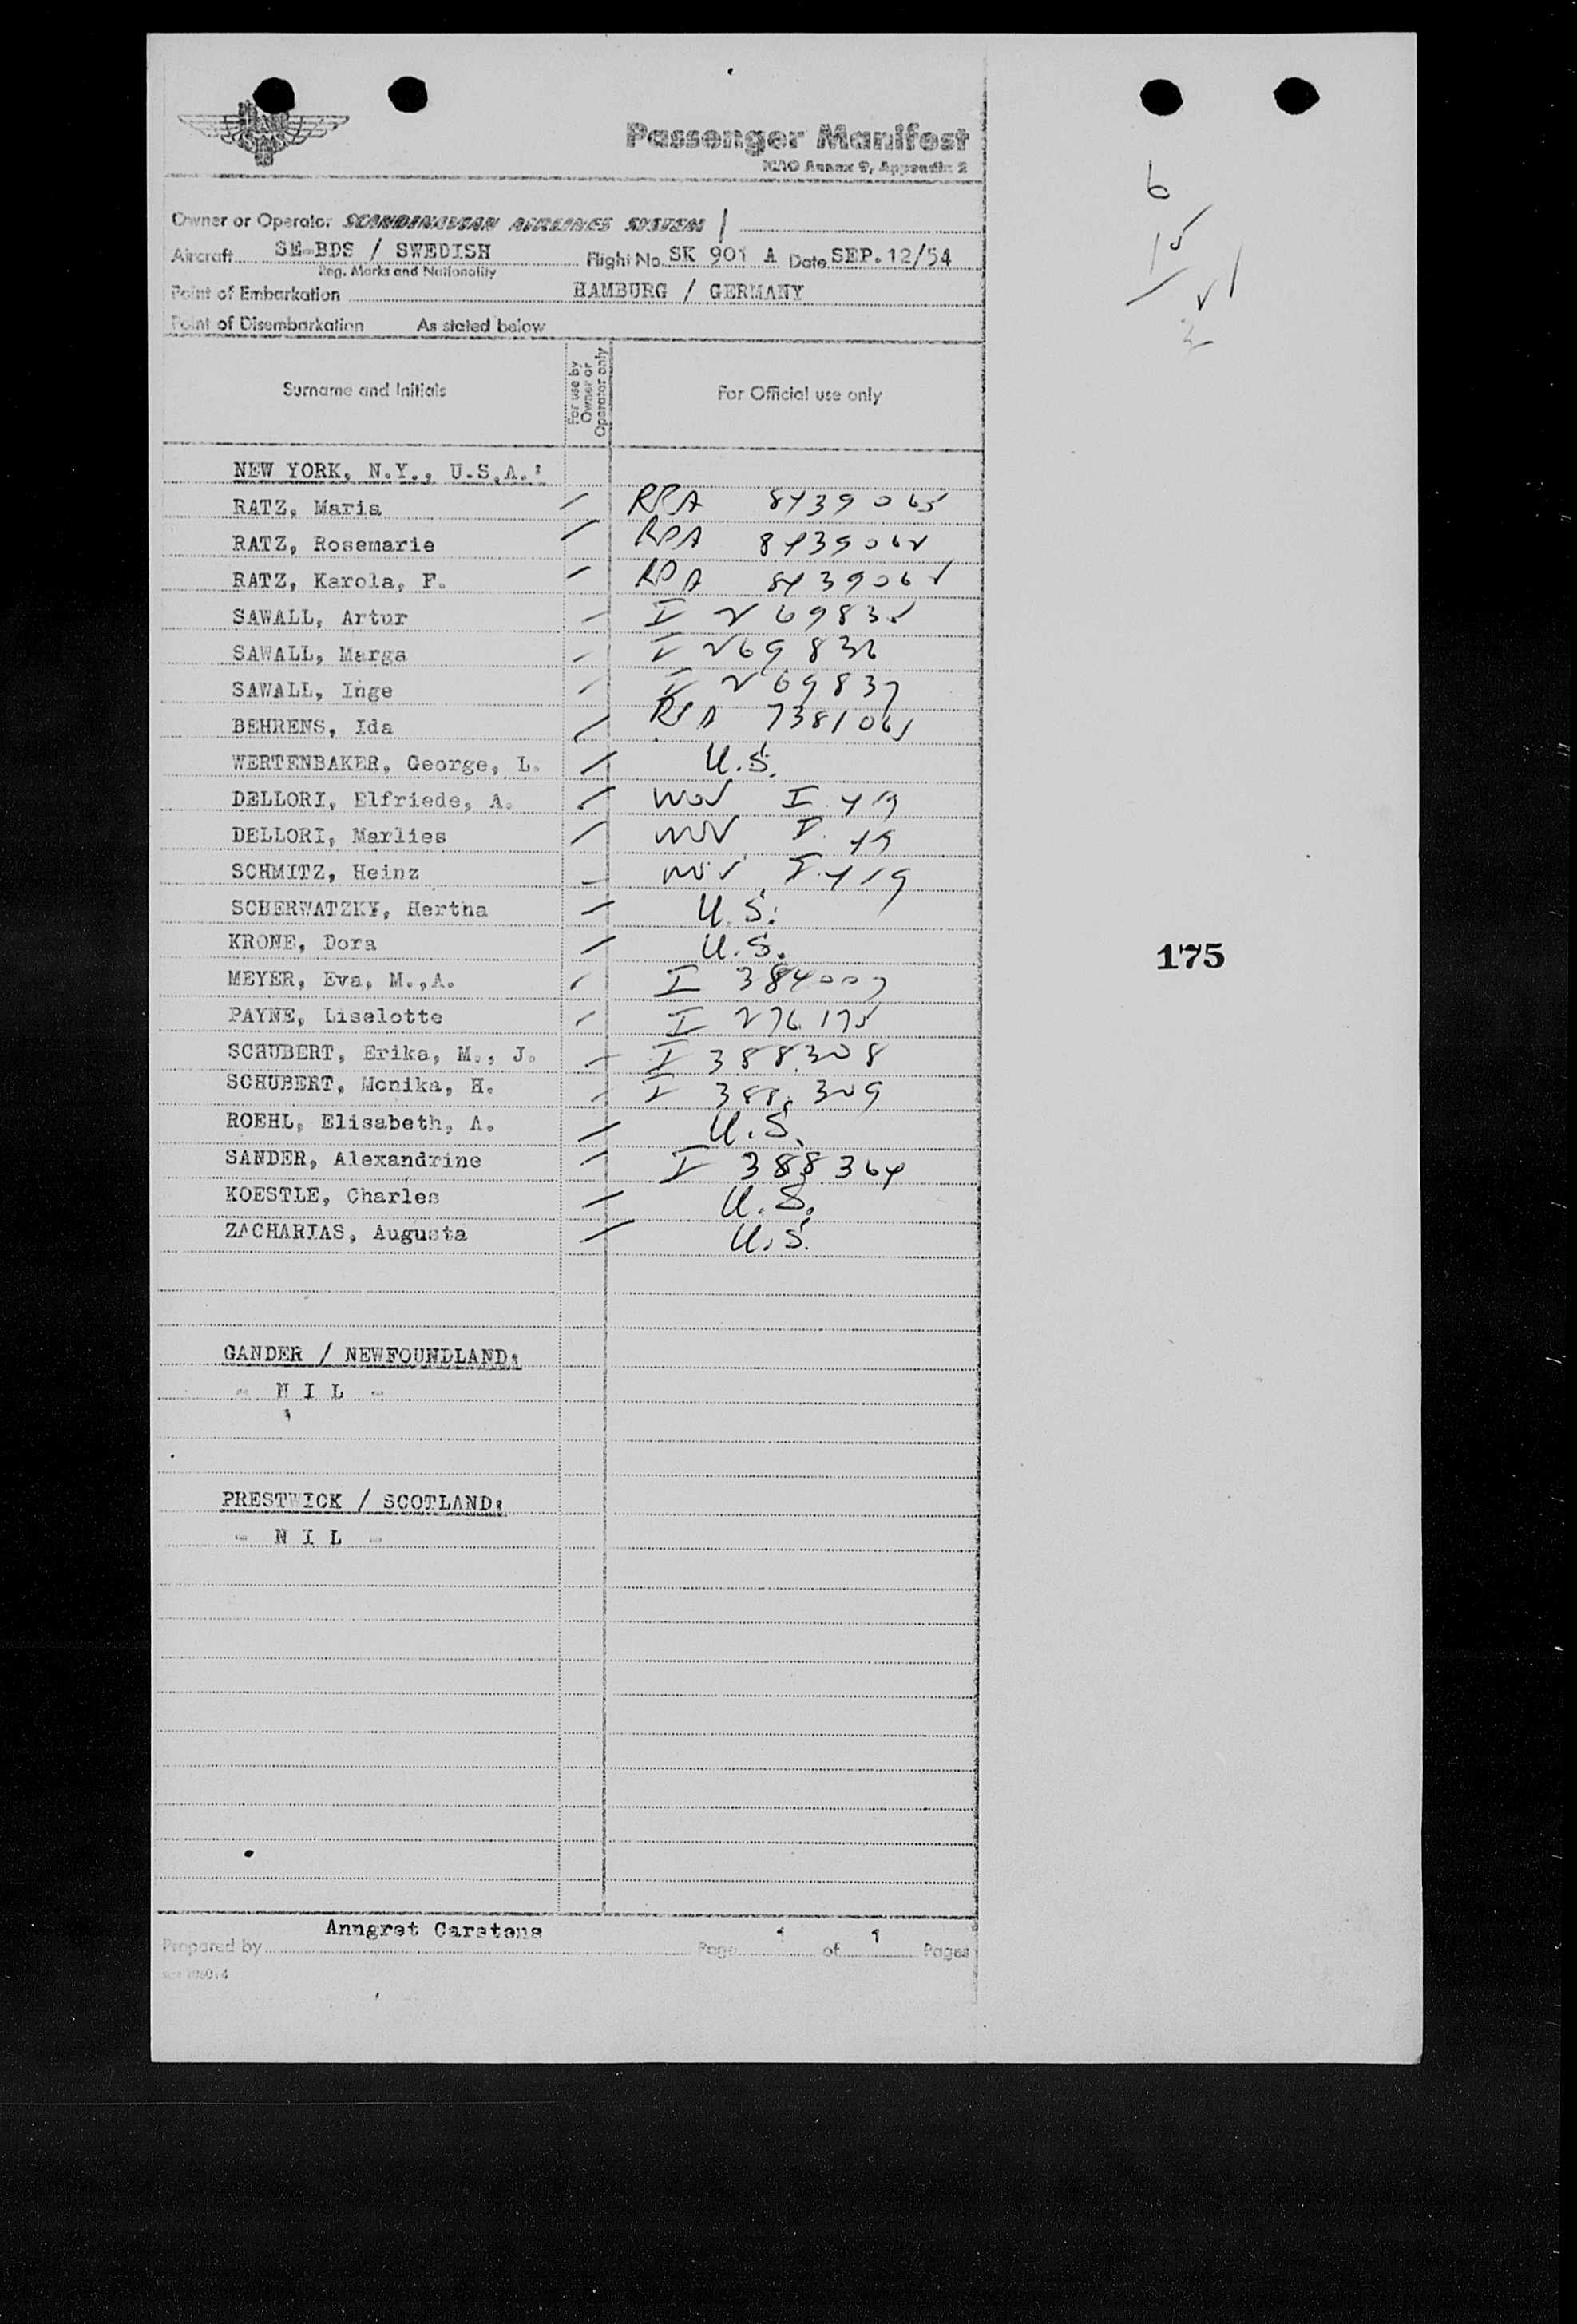 SAS
Passenger Manifest
ICAO Annex 9, Appendix 2
Owner or Operator SCANDINAVIAN AIRLINES SYSTEM
Aircraft SE-BDS / SWEDISH Flight No. SK 901 A Date SEP. 12/54
Reg. Marks and Nationality
Point of Embarkation HAMBURG / GERMANY
Point of Disembarkation As stated below
Surname and Initials For use by Owner or Operator only For Official use only
6
15
21
NEW YORK, N.Y., U.S.A.:
RATZ, Maria RPA 8439065
RATZ, Rosemarie RPA 8439062
RATZ, Karola, F. RPA
SAWALL, Artur I 269835
SAWALL, Marga I 269836
SAWALL, Inge I 269837
BEHRENS, Ida
WERTENBAKER, George, L. U.S.
DELLORI, Elfriede, A. I 419
DELLORI, Marlies I
SCHMITZ, Heinz I 419
SCHERWATZKY, Hertha U.S.
KRONE, Dora U.S.
MEYER, Eva, M.,A. I 384007
PAYNE, Liselotte I 276175
SCHUBERT, Erika, M., J. I 388308
SCHUBERT, Monika, H. I 388309
ROEHL, Elisabeth, A. U.S.
SANDER, Alexandrine I 388364
KOESTLE, Charles U.S.
ZACHARIAS, Augusta U.S.
175
GANDER / NEWFOUNDLAND:
- N I L -
PRESTWICK / SCOTLAND:
- N I L -
Prepared by Anngret Carstens Page 1 of 1 Pages